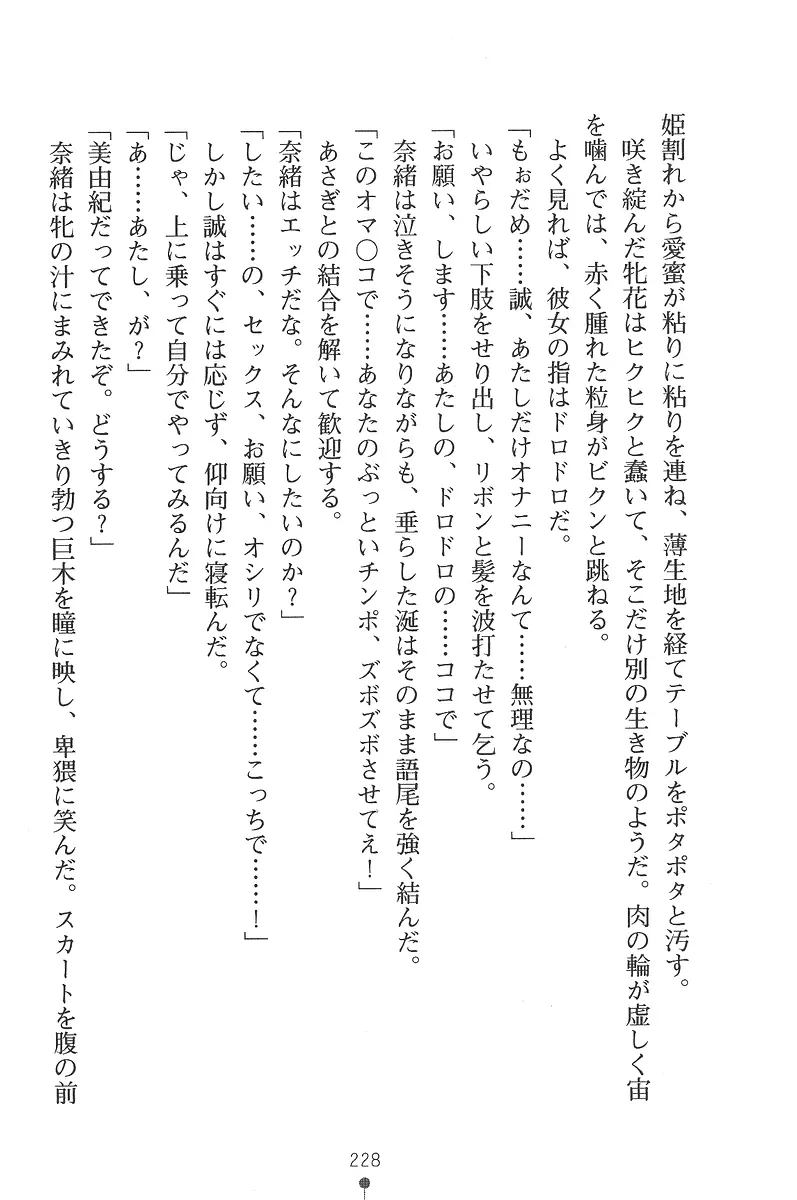 姫割れから愛蜜が粘りに粘りを連ね、薄生地を経てテーブルをポタポタと汚す。
咲き綻んだ牝花はヒクヒクと蠢いて、そこだけ別の生き物のようだ。肉の輪が虚しく宙
を噛んでは、赤く腫れた粒身がビクンと跳ねる。
よく見れば、彼女の指はドロドロだ。
「もぉだめ……誠、あたしだけオナニーなんて……無理なの……」
いやらしい下肢をせり出し、リボンと髪を波打たせて乞う。
「お願い、します……あたしの、ドロドロの……ココで」
奈緒は泣きそうになりながらも、垂らした涎はそのまま語尾を強く結んだ。
「このオマ〇コで……あなたのぶっといチンポ、ズボズボさせてえ！」
あさぎとの結合を解いて歓迎する。
「奈緒はエッチだな。そんなにしたいのか？」
「したい……の、セックス、お願い、オシリでなくて……こっちで……！」
しかし誠はすぐには応じず、仰向けに寝転んだ。
「じゃ、上に乗って自分でやってみるんだ」
「あ……あたし、が？」
「美由紀だってできたぞ。どうする？」
奈緒は牝の汁にまみれていきり勃つ巨木を瞳に映し、卑猥に笑んだ。スカートを腹の前
228